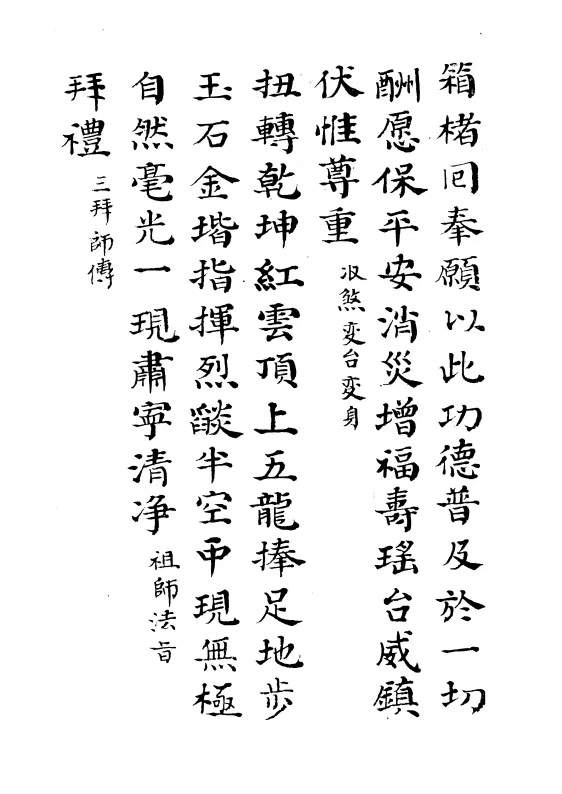 箱楮囘奉願以此功德普及於一切
酬愿保平安消災增福壽瑤台威鎮
伏惟尊重 收煞变台变身
扭轉乾坤紅雲頂上五龍捧足地步
玉石金堦指揮烈燄半空中現無極
自然毫光一現肅寧清净 祖師法旨
拜禮 三拜師傅